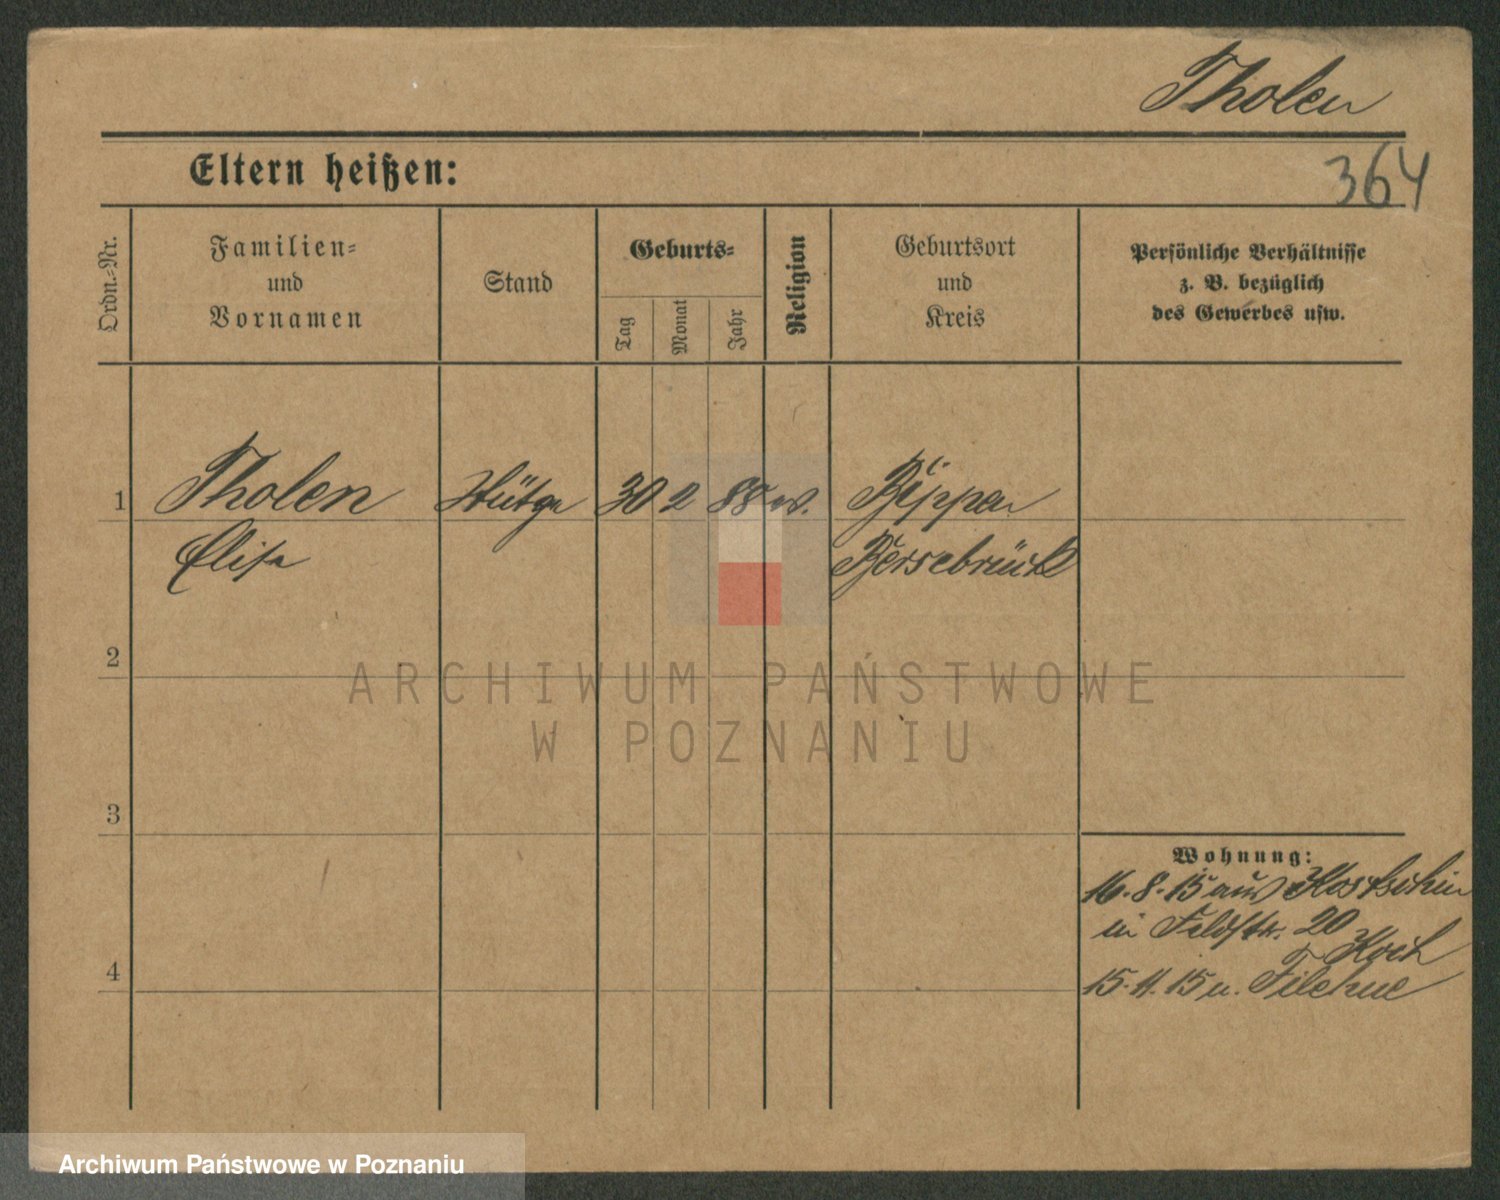 Tholen
Eltern heißen:
364
Ordn.-Nr.
Familien-
und
Vornamen
Stand
Geburts-
Tag
Monat
Jahr
Religion
Geburtsort
und
Kreis
Persönliche Verhältnisse
z. B. bezüglich
des Gewerbes usw.
1
Tholen
30 2 88
Bippen
Elise
Bersebrück
2
3
4
Wohnung:
16.8.15 aus Kostschin
in Feldstr. 20
Koch
15.11.15 n. Filehne
ARCHIWUM PAŃSTWOWE
W POZNANIU
Archiwum Państwowe w Poznaniu